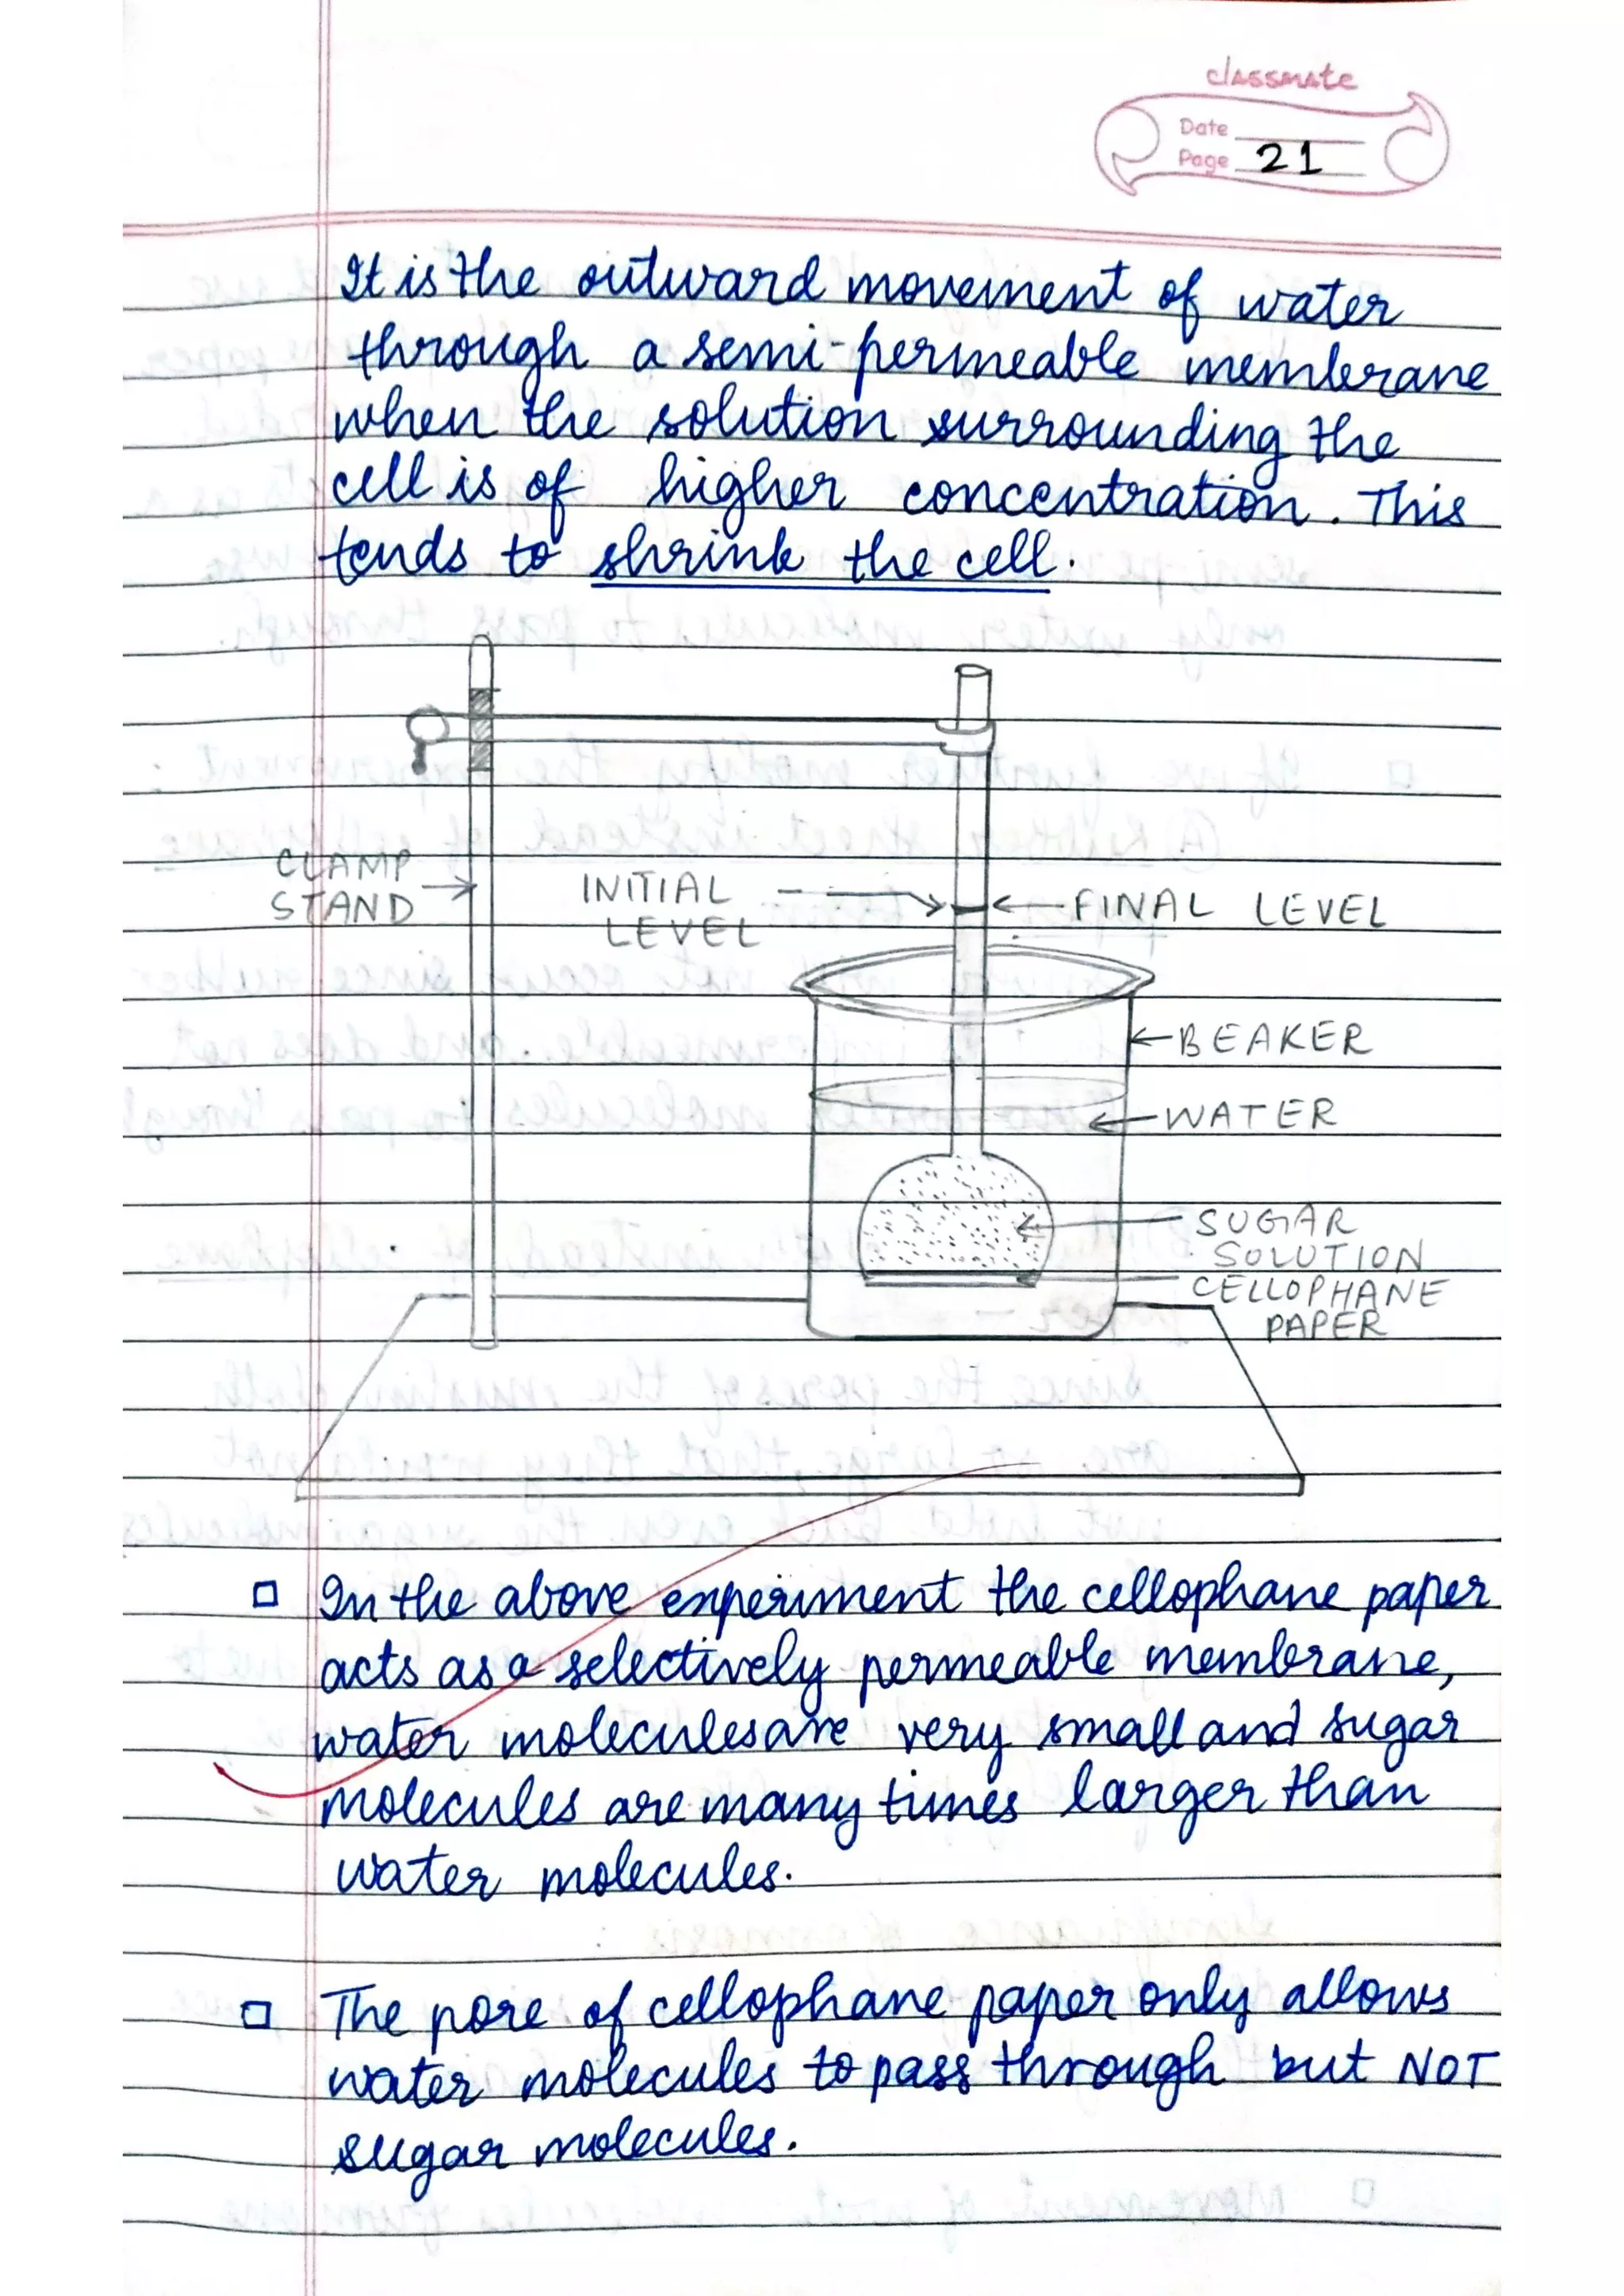 classmate
Date
Page 21
It is the outward movement of water
through a semi-permeable membrane
when the solution surrounding the
cell is of higher concentration. This
tends to shrink the cell.
CLAMP
STAND
INITIAL
LEVEL
FINAL LEVEL
BEAKER
WATER
SUGAR
SOLUTION
CELLOPHANE
PAPER
□ In the above experiment the cellophane paper
acts as a selectively permeable membrane,
water molecules are very small and sugar
molecules are many times larger than
water molecules.
□ The pore of cellophane paper only allows
water molecules to pass through but NOT
sugar molecules.